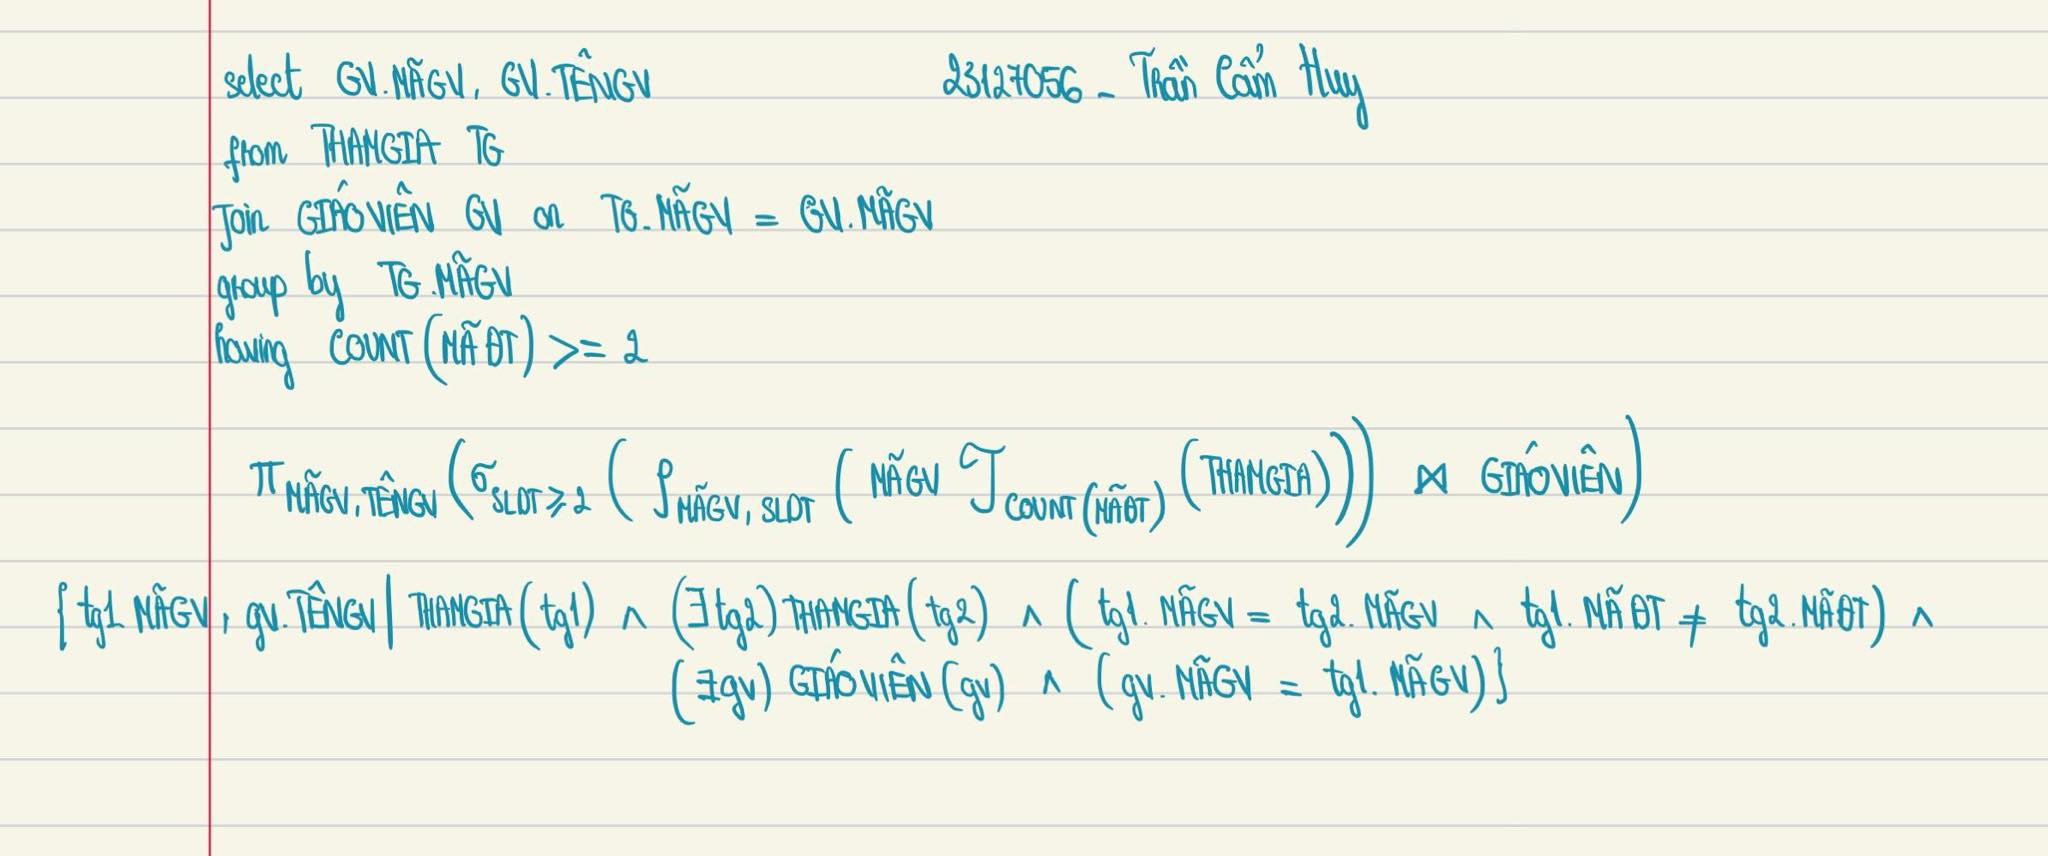 select GV.MÃGV, GV.TÊNGV 23127056 - Trần Cẩm Huy
from THAMGIA TG
Join GIÁOVIÊN GV on TG.MÃGV = GV.MÃGV
group by TG.MÃGV
having COUNT(MÃĐT) >= 2
π MÃGV, TÊNGV (σ SLDT ≥ 2 (ρ MÃGV, SLDT (MÃGV ℑ COUNT(MÃĐT) (THAMGIA))) ⋈ GIÁOVIÊN)
{tg1.MÃGV, gv.TÊNGV | THAMGIA(tg1) ∧ (∃tg2) THAMGIA(tg2) ∧ (tg1.MÃGV = tg2.MÃGV ∧ tg1.MÃĐT ≠ tg2.MÃĐT) ∧
(∃gv) GIÁOVIÊN(gv) ∧ (gv.MÃGV = tg1.MÃGV)}